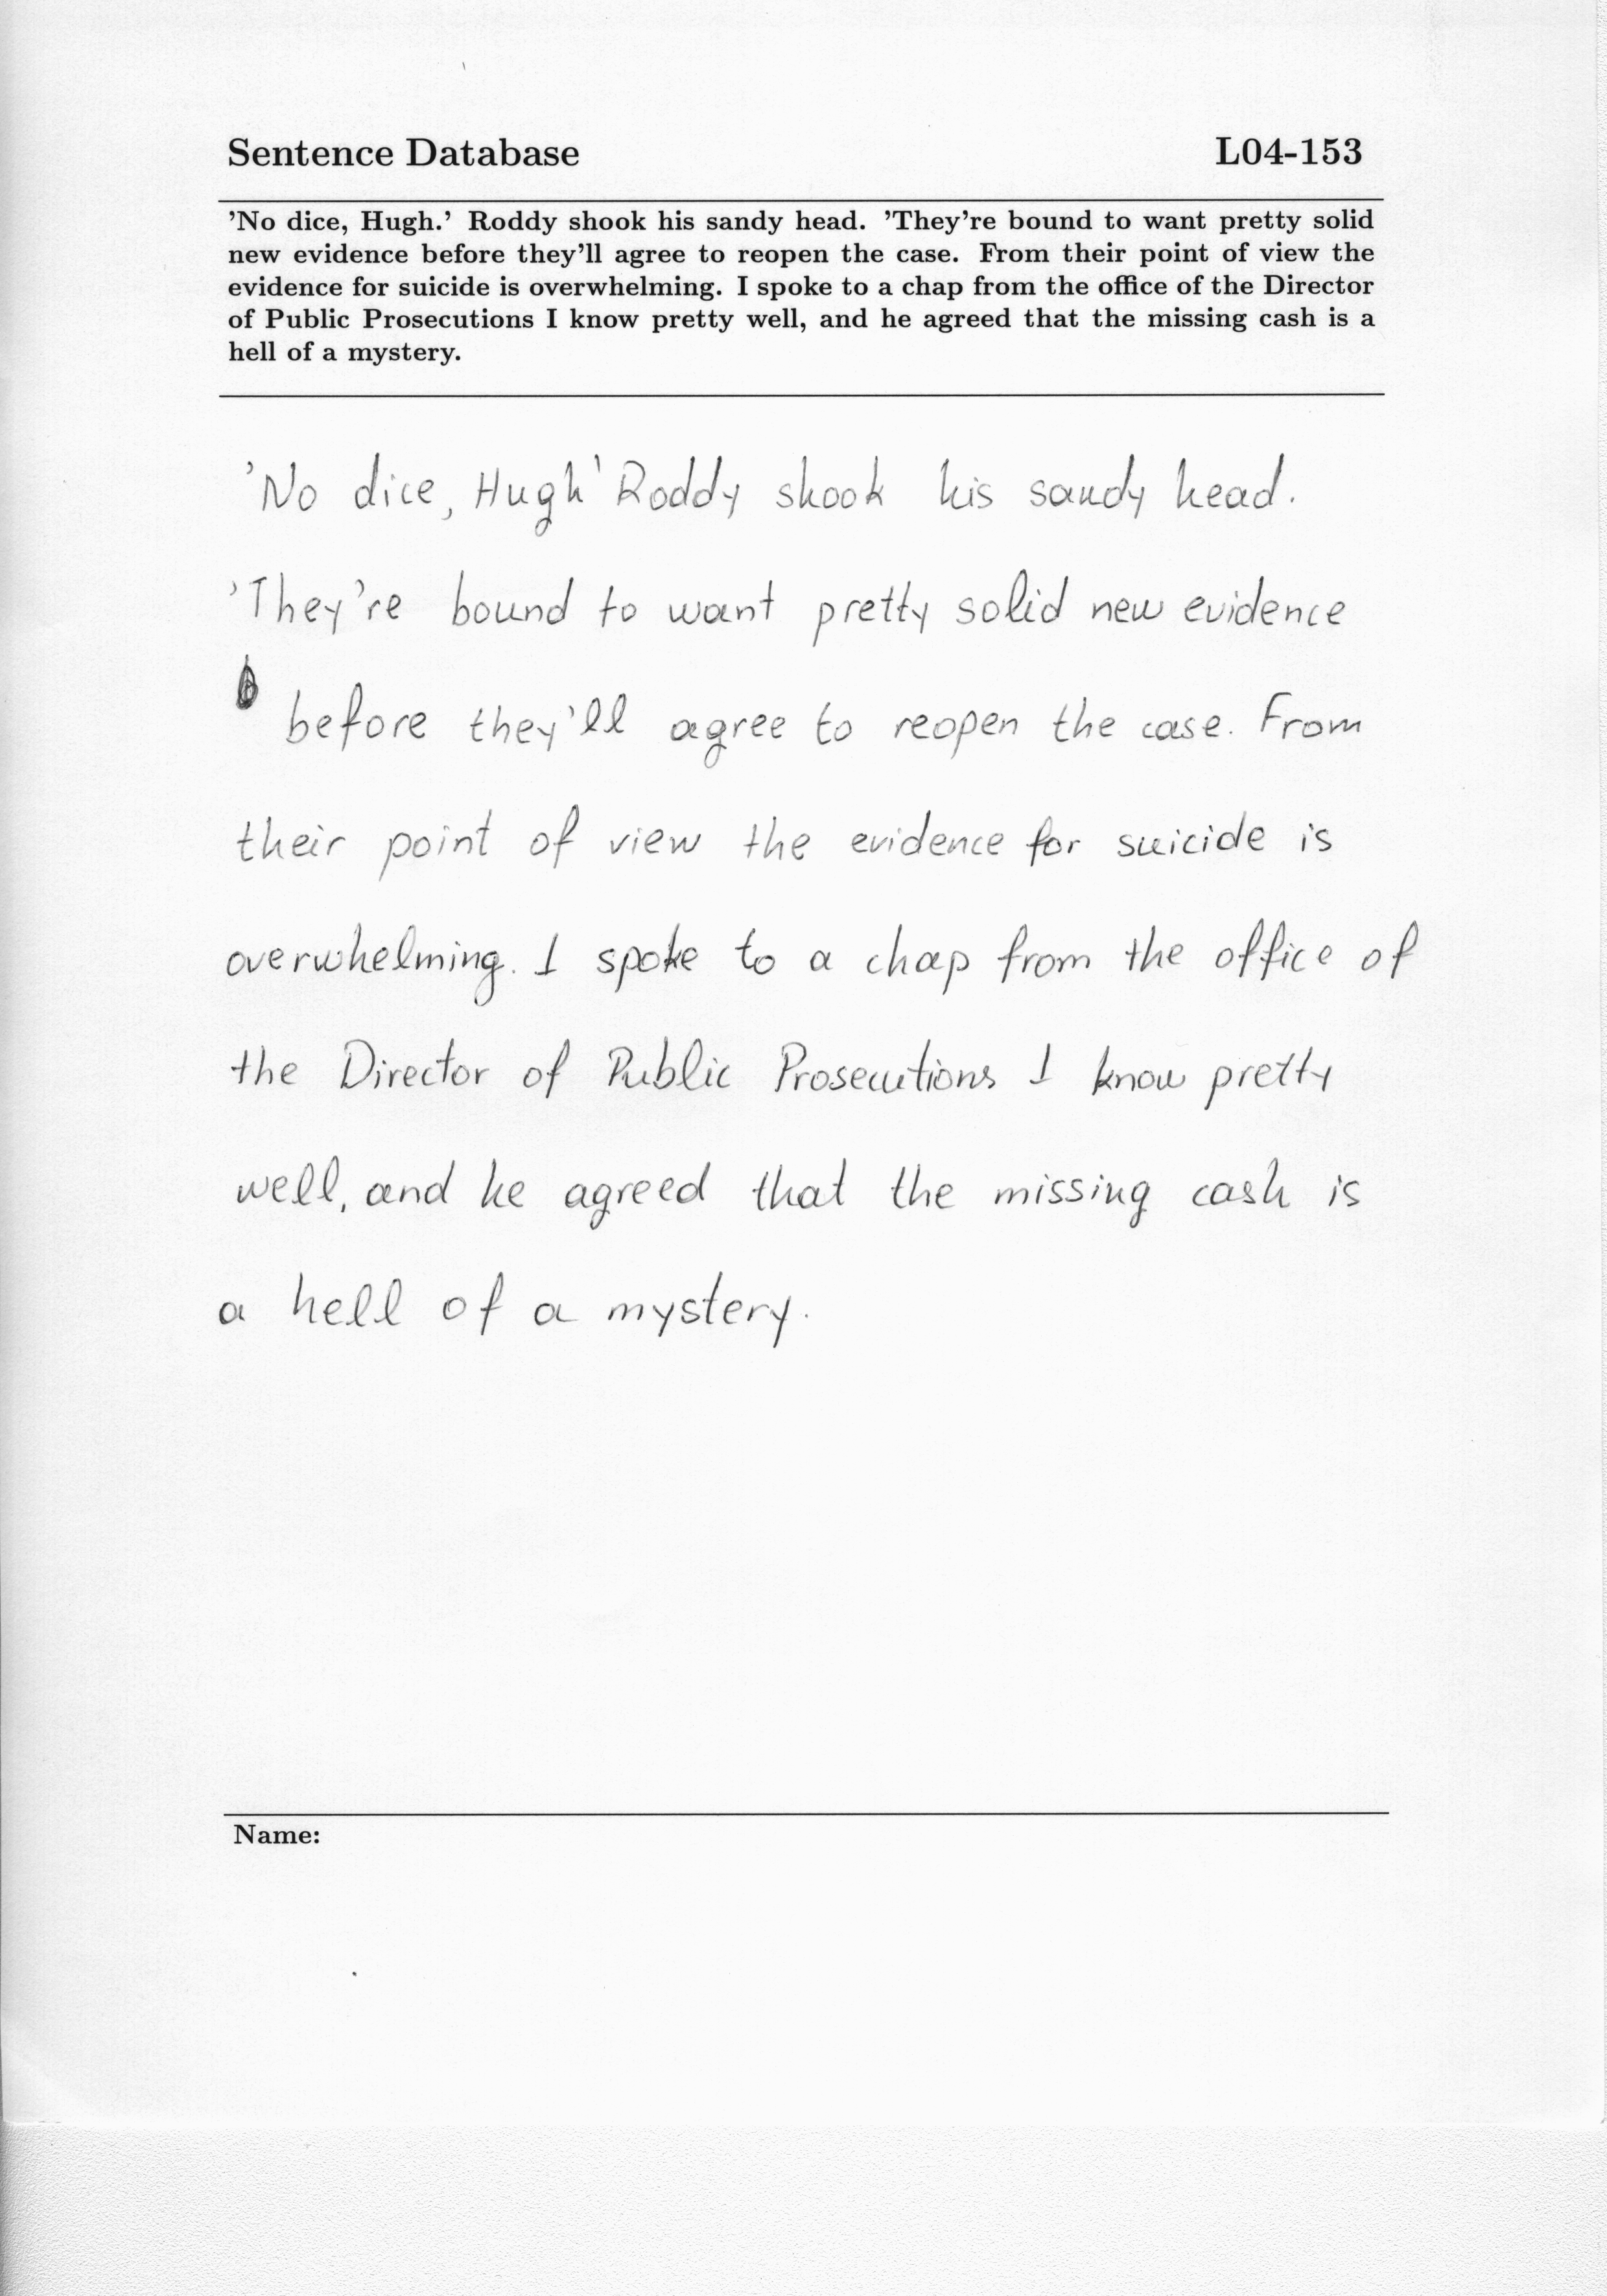 Sentence Database L04-153
'No dice, Hugh.' Roddy shook his sandy head. 'They're bound to want pretty solid
new evidence before they'll agree to reopen the case. From their point of view the
evidence for suicide is overwhelming. I spoke to a chap from the office of the Director
of Public Prosecutions I know pretty well, and he agreed that the missing cash is a
hell of a mystery.
'No dice, Hugh' Roddy shook his sandy head.
'They're bound to want pretty solid new evidence
before they'll agree to reopen the case. From
their point of view the evidence for suicide is
overwhelming. I spoke to a chap from the office of
the Director of Public Prosecutions I know pretty
well, and he agreed that the missing cash is
a hell of a mystery.
Name: